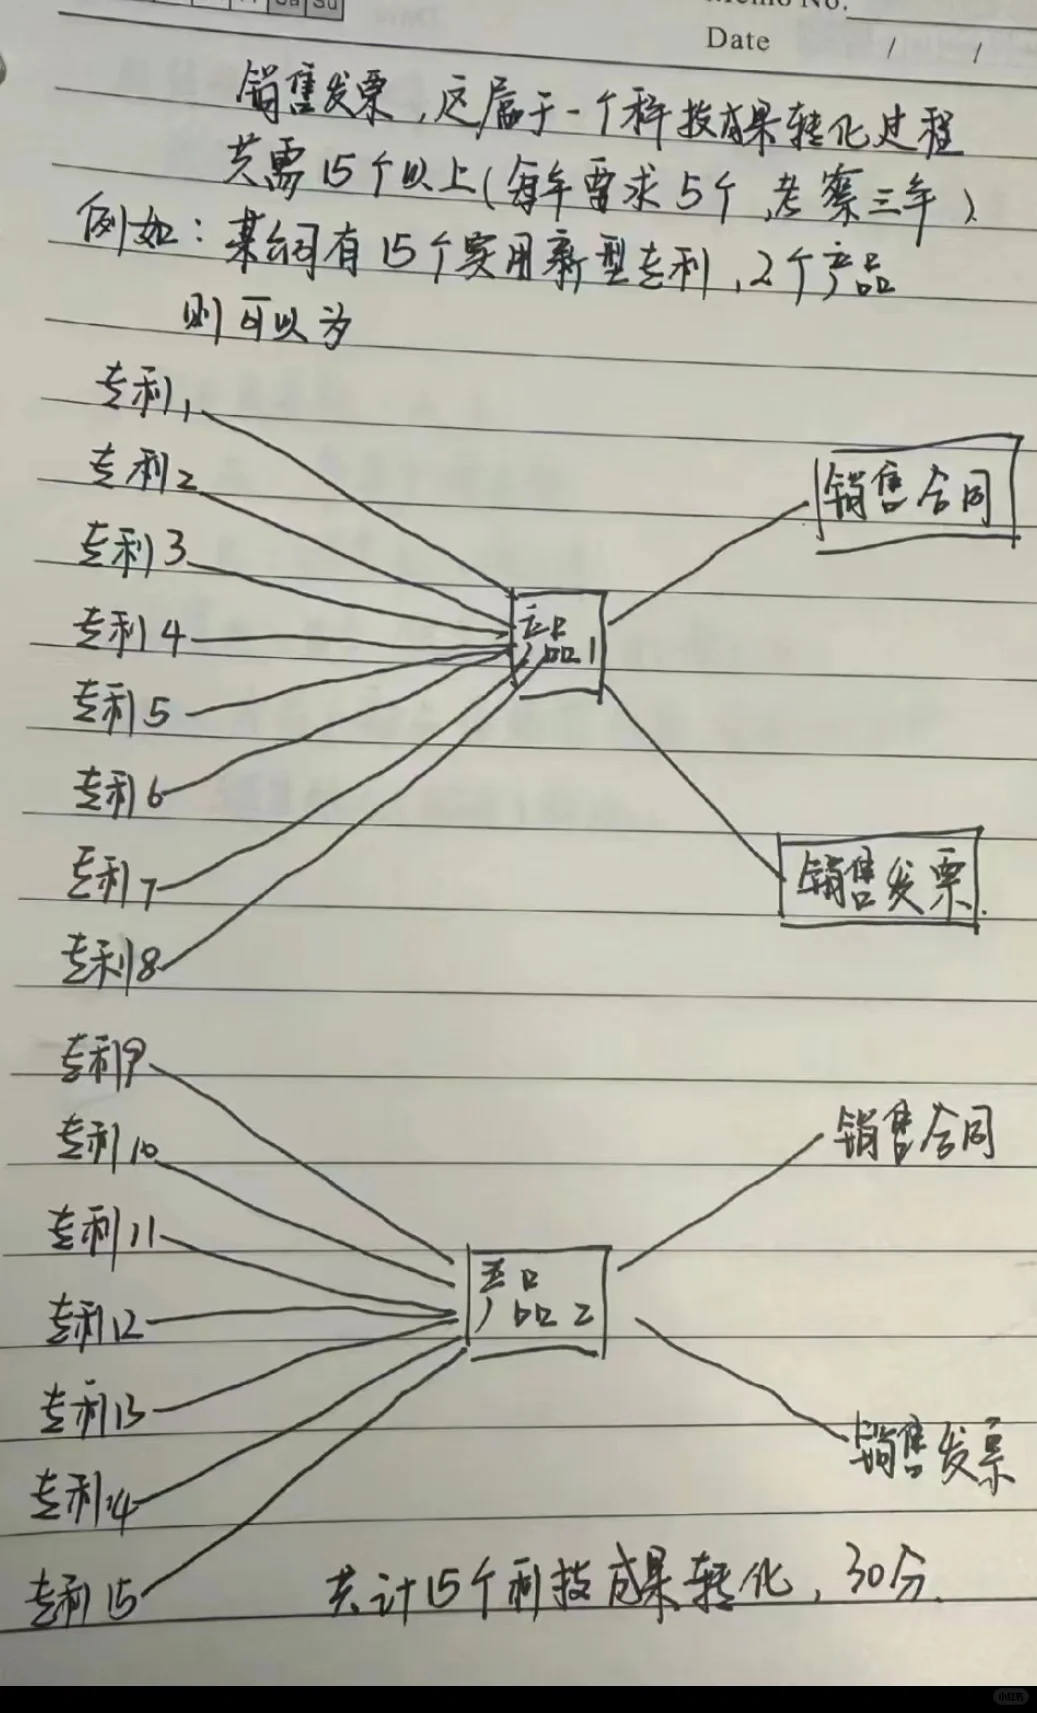 Sa Su
Memo No.
Date / /
销售发票,这属于一个科技成果转化过程
共需15个以上(每年要求5个,考察三年).
例如:某公司有15个实用新型专利,2个产品
则可以为
专利1
专利2
销售合同
专利3
专利4
产品1
专利5
专利6
专利7
销售发票.
专利8
专利9
专利10
销售合同
专利11
产品2
专利12
专利13
销售发票
专利14
专利15
共计15个科技成果转化,30分.
小红书